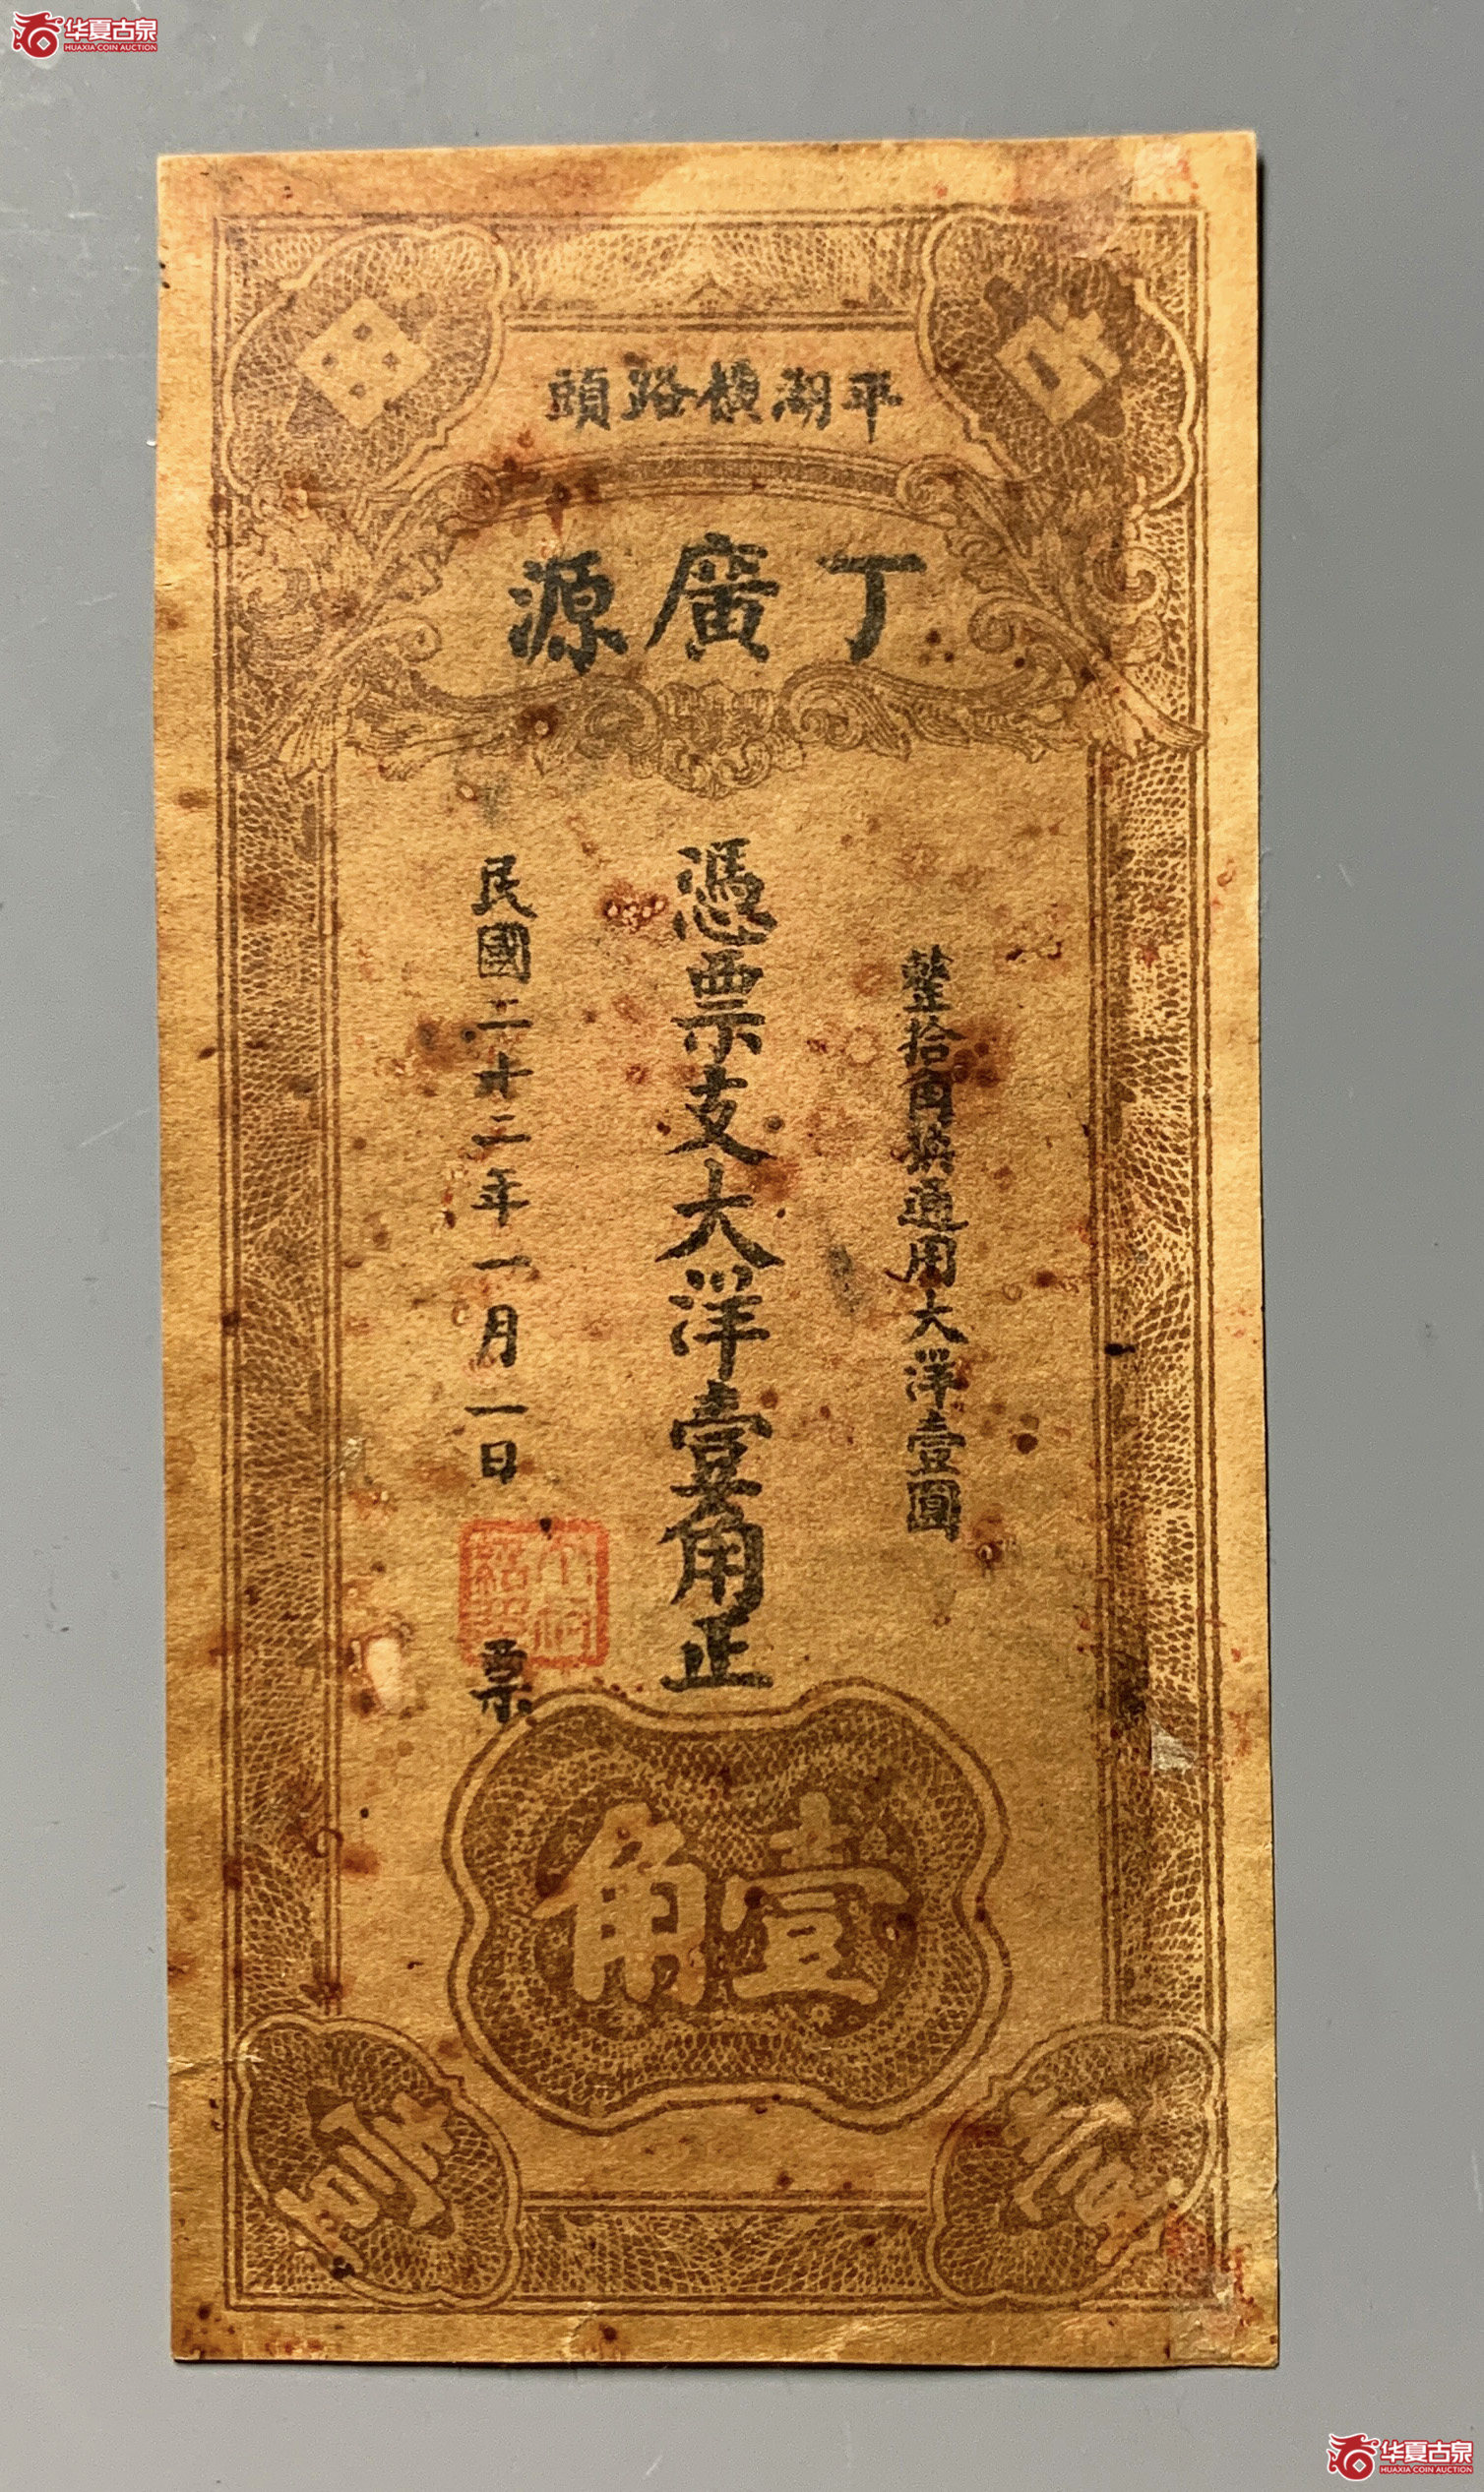 华夏古泉
HUAXIA COIN AUCTION
平湖橫路頭
丁廣源
整拾角換通用大洋壹圓
憑票支大洋壹角正
民國二十二年一月一日 票
壹角
华夏古泉
HUAXIA COIN AUCTION